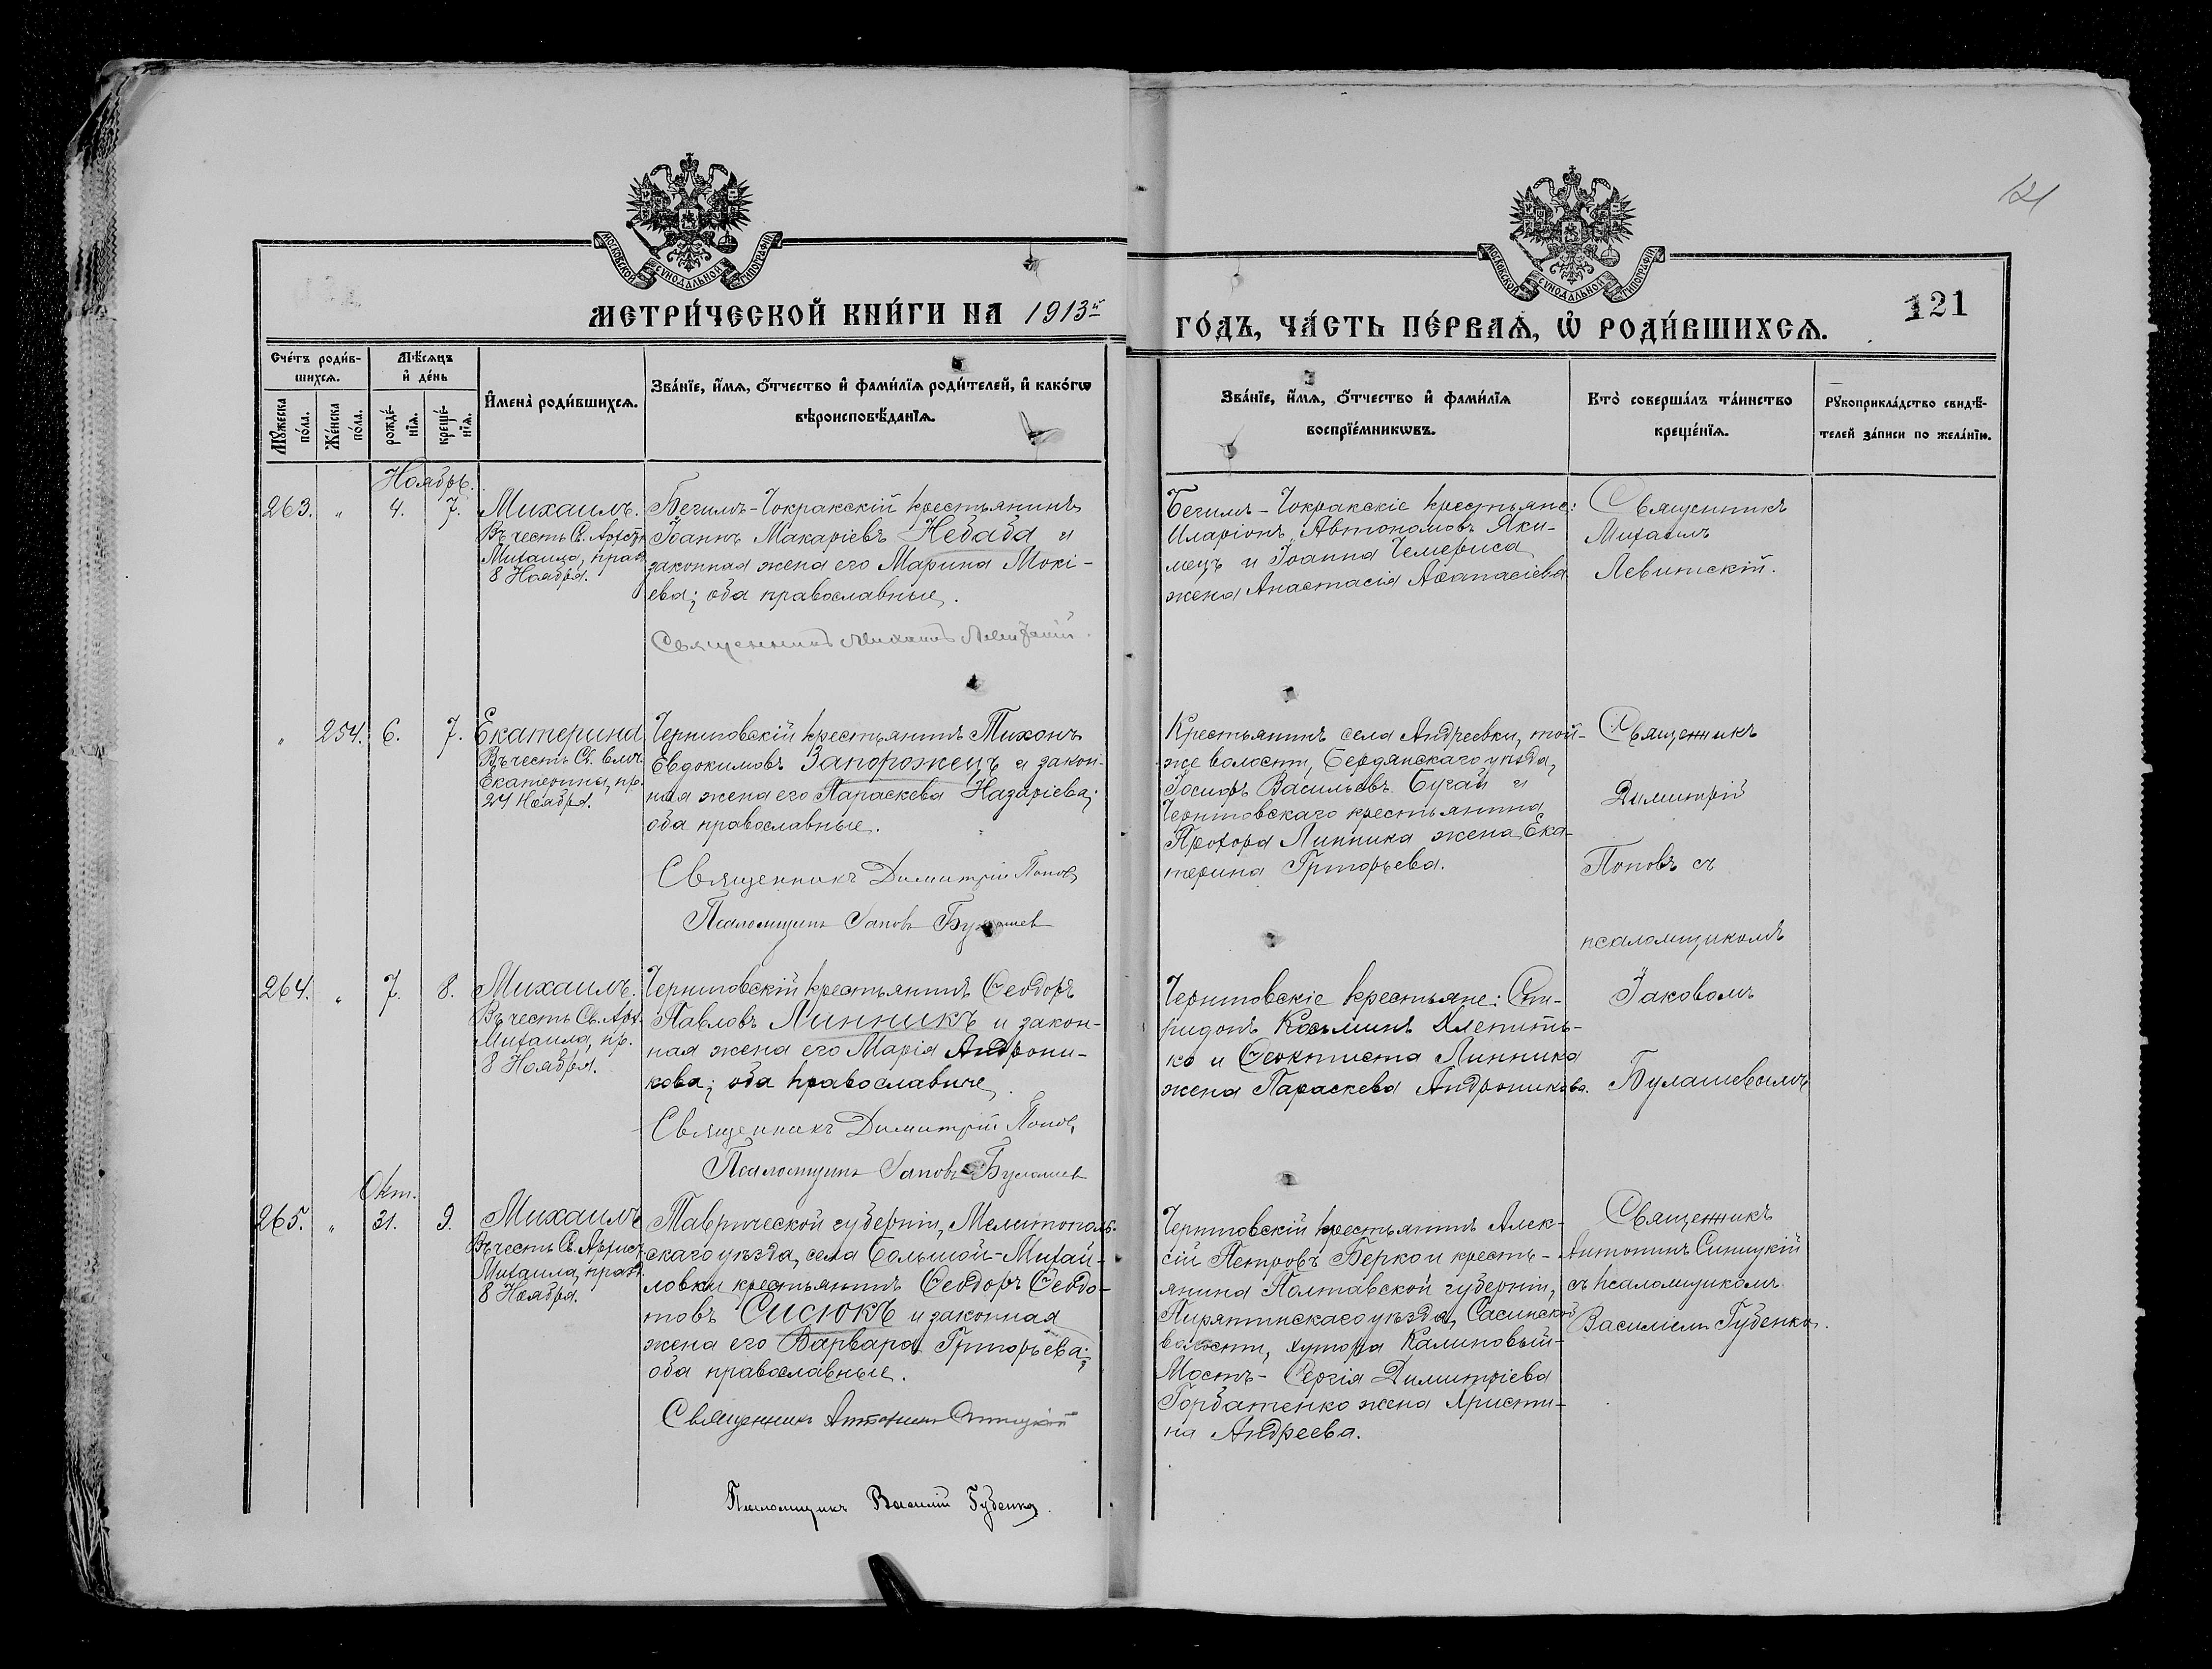 121
МОСКОВСКОЙ СѴНОДАЛЬНОЙ ТИПОГРАФІИ
МОСКОВСКОЙ СѴНОДАЛЬНОЙ ТИПОГРАФІИ
МЕТРИ́ЧЕСКОЙ КНИ́ГИ НА 1913й
ГО́ДЪ, ЧА́СТЬ ПЕ́РВАѦ, Ѡ РОДИ́ВШИХСѦ.
121
Сче́тъ роди́в-
шихсѧ.
Мѣ́сѧцъ
и҆ де́нь
Мꙋ́жеска
по́ла.
Же́нска
по́ла.
рожде́-
нїѧ.
креще́-
нїѧ.
И҆мена̀ роди́вшихсѧ.
Зва́нїе, и҆́мѧ, ѻ҆́тчество и҆ фами́лїѧ роди́телей, и҆ како́гѡ
вѣроисповѣ́данїѧ.
Зва́нїе, и҆́мѧ, ѻ҆́тчество и҆ фами́лїѧ
воспрїе́мникѡвъ.
Кто̀ соверша́лъ та́инство
креще́нїѧ.
Рꙋкоприкла́дство свидѣ́-
телей за́писи по жела́нїю.
Ноябрь.
263. " 4. 7. Михаилъ.
Въ честь Св. Архстр.
Михаила, празд.
8 Ноября.
Бегимъ-Чокракскій крестьянинъ
Іоаннъ Макаріевъ Небаба и
законная жена его Марина Мокі-
ева; оба православные.
Священникъ Михаилъ Левитскій.
Бегимъ-Чокракскіе крестьяне:
Иларіонъ Автономовъ Яки-
мецъ и Іоанна Чемериса
жена Анастасія Аѳанасіева.
Священникъ
Михаилъ
Левитскій.
" 254. 6. 7. Екатерина
Въ честь Св. влмч.
Екатерины, пр.
24 Ноября.
Черниговскій крестьянинъ Тихонъ
Евдокимовъ Запорожецъ и закон-
ная жена его Параскева Назаріева;
оба православные.
Священникъ Димитрій Попов
Псаломщикъ Іаковъ Булашев
Крестьянинъ села Андреевки, той-
же волости, Бердянскаго уѣзда,
Іосифъ Васильевъ Бугай и
Черниговскаго крестьянина
Прохора Линника жена Ека-
терина Григорьева.
Священникъ
Димитрій
Поповъ съ
псаломщикомъ
Іаковомъ
Булашевымъ
264. " 7. 8. Михаилъ.
Въ честь Св. Арх.
Михаила, пр.
8 Ноября.
Черниговскій крестьянинъ Ѳеодоръ
Павловъ Линникъ и закон-
ная жена его Марія Андрони-
кова; оба православные.
Священникъ Димитрій Попов,
Псаломщикъ Іаковъ Булашев
Черниговскіе крестьяне: Спи-
ридонъ Косьминъ
ко и Ѳеоктиста Линника
жена Параскева Андроникова.
Окт.
265. " 31. 9. Михаилъ
Въ честь Св. Архист.
Михаила, празд.
8 Ноября.
Таврической губерніи, Мелитополь-
скаго уѣзда, села Большой-Михай-
ловки крестьянинъ Ѳеодоръ Ѳеодо-
товъ Сисюкъ и законная
жена его Варвара Григорьева;
оба православные.
Священникъ Антонинъ Синицкій
Псаломщикъ Василій Губенко.
Черниговскій крестьянинъ Алек-
сій Петровъ Берко и кресть-
янина Полтавской губерніи,
Пирятинскаго уѣзда, Сасинской
волости, хутора Калиновый-
Мостъ- Сергія Димитріева
Горбатенко жена Христи-
на Андреева.
Священникъ
Антонинъ Синицкій
съ псаломщикомъ
Василіемъ Губенко.